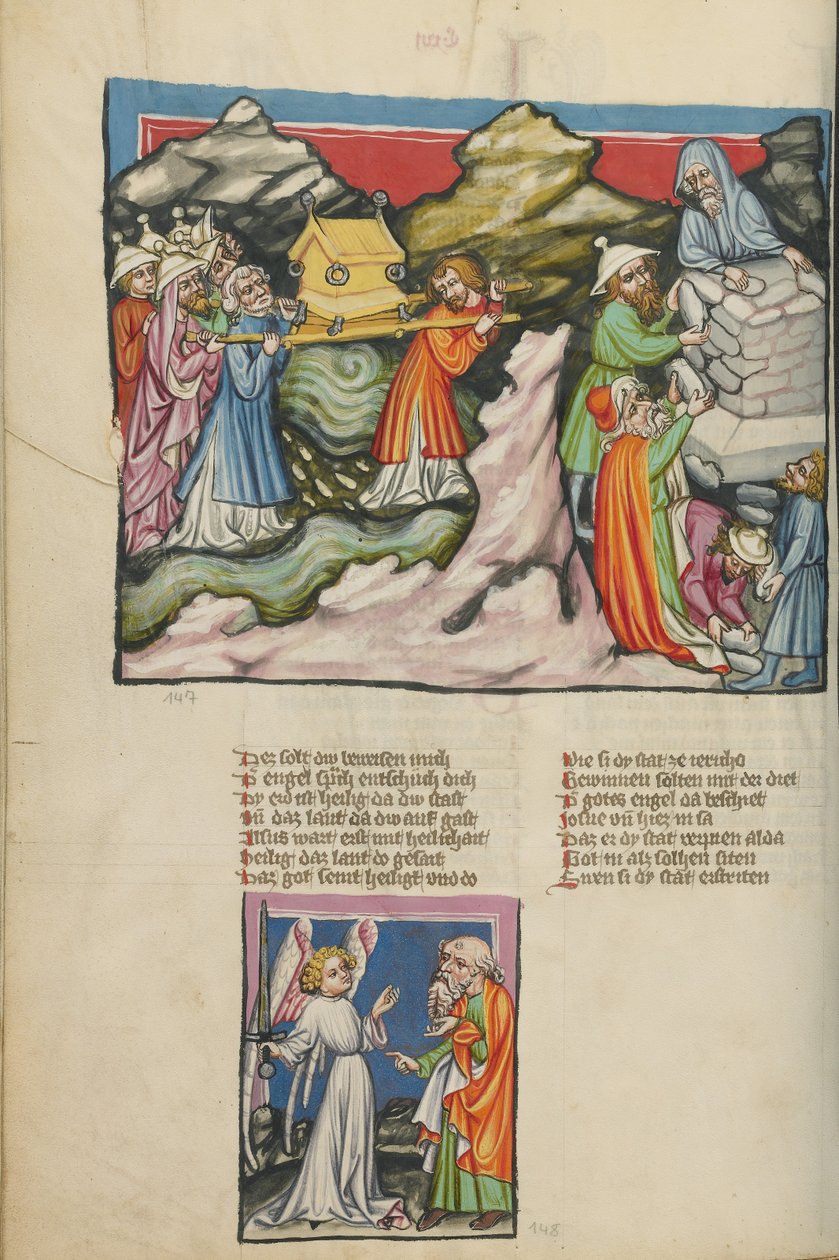 147
Der solt dw beweisen mich
D̄ engel sprach entschuch dich
Dy erd ist heilig da dw stast
Vn̄ daz lant da dw auf gast
Alsus wart erst mit heilichait
Heilig daz lant do geseit
Daz got seint heiligt vnd do
Wie si dy stat ze iericho
Gewinnen solten mit der diet
D̄ gotes engel da beschiet
Josue vn̄ hiez in sa
Daz er dy stat verpren alda
Got in alz solhen siten
Swen si dy stat erstriten
148